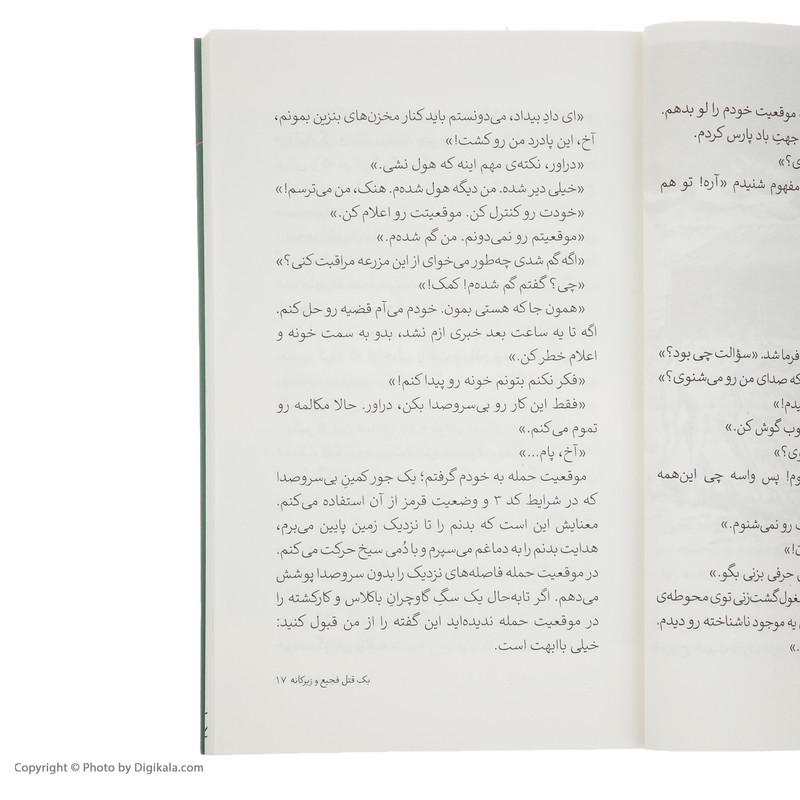 موقعیت خودم را لو بدهم.
جهتِ باد پارس کردم.
ی؟»
مفهوم شنیدم «آره! تو هم
فرما شد. «سؤالت چی بود؟»
که صدای من رو می‌شنوی؟»
یدم!»
وب گوش کن.»
وی؟»
وم! پس واسه چی این‌همه
ت رو نمی‌شنوم.»
ن!»
ی حرفی بزنی بگو.»
غول گشت‌زنی توی محوطه‌ی
یه موجود ناشناخته رو دیدم.
.»
«ای دادِ بیداد، می‌دونستم باید کنار مخزن‌های بنزین بمونم،
آخ، این پادرد من رو کشت!»
«دراور، نکته‌ی مهم اینه که هول نشی.»
«خیلی دیر شده. من دیگه هول شده‌م. هنک، من می‌ترسم!»
«خودت رو کنترل کن. موقعیتت رو اعلام کن.»
«موقعیتم رو نمی‌دونم. من گم شده‌م.»
«اگه گم شدی چه‌طور می‌خوای از این مزرعه مراقبت کنی؟»
«چی؟ گفتم گم شده‌م! کمک!»
«همون جا که هستی بمون. خودم می‌آم قضیه رو حل کنم.
اگه تا یه ساعت بعد خبری ازم نشد، بدو به سمت خونه و
اعلام خطر کن.»
«فکر نکنم بتونم خونه رو پیدا کنم!»
«فقط این کار رو بی‌سروصدا بکن، دراور. حالا مکالمه رو
تموم می‌کنم.»
«آخ، پام...»
موقعیت حمله به خودم گرفتم؛ یک جور کمینِ بی‌سروصدا
که در شرایط کد ۳ و وضعیت قرمز از آن استفاده می‌کنم.
معنایش این است که بدنم را تا نزدیک زمین پایین می‌برم،
هدایت بدنم را به دماغم می‌سپرم و با دُمی سیخ حرکت می‌کنم.
در موقعیت حمله فاصله‌های نزدیک را بدون سروصدا پوشش
می‌دهم. اگر تابه‌حال یک سگِ گاوچرانِ باکلاس و کارکشته را
در موقعیت حمله ندیده‌اید این گفته را از من قبول کنید:
خیلی باابهت است.
یک قتل فجیع و زیرکانه ۱۷
Copyright © Photo by Digikala.com